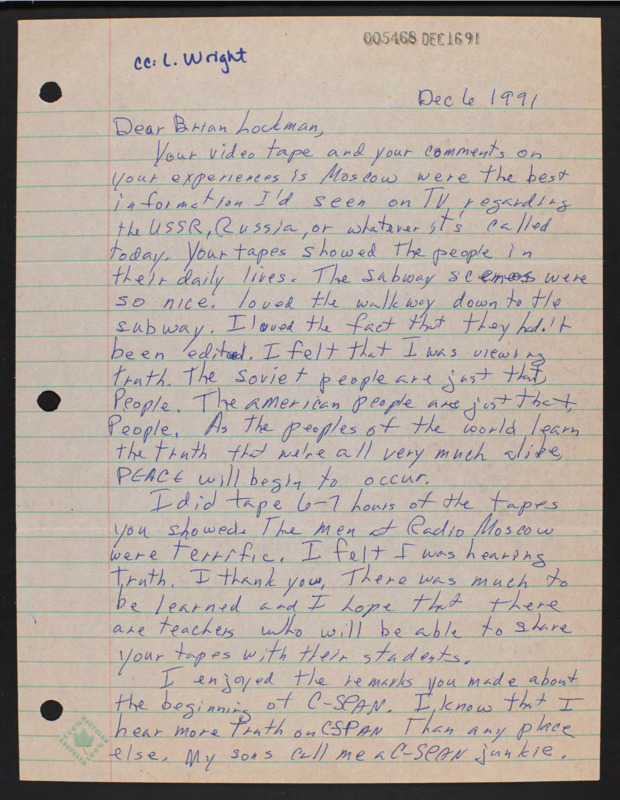 005468 DEC 16 91
cc: L. Wright
Dec 6 1991
Dear Brian Lockman,
Your video tape and your comments on
your experiences is Moscow were the best
information I'd seen on TV, regarding
the USSR, Russia, or whatever it's called
today. Your tapes showed the people in
their daily lives. The subway scenes were
so nice. loved the walkway down to the
subway. I loved the fact that they hadn't
been edited. I felt that I was viewing
truth. The Soviet people are just that,
People. The american people are just that,
People. As the peoples of the world learn
the truth that we're all very much alike,
PEACE will begin to occur.
I did tape 6-7 hours of the tapes
you showed. The men at Radio Moscow
were terrific. I felt I was hearing
Truth. I thank you, There was much to
be learned and I hope that there
are teachers who will be able to share
your tapes with their students.
I enjoyed the remarks you made about
the beginning of C-SPAN. I know that I
hear more truth on CSPAN Than any place
else. My sons call me a C-SPAN junkie.